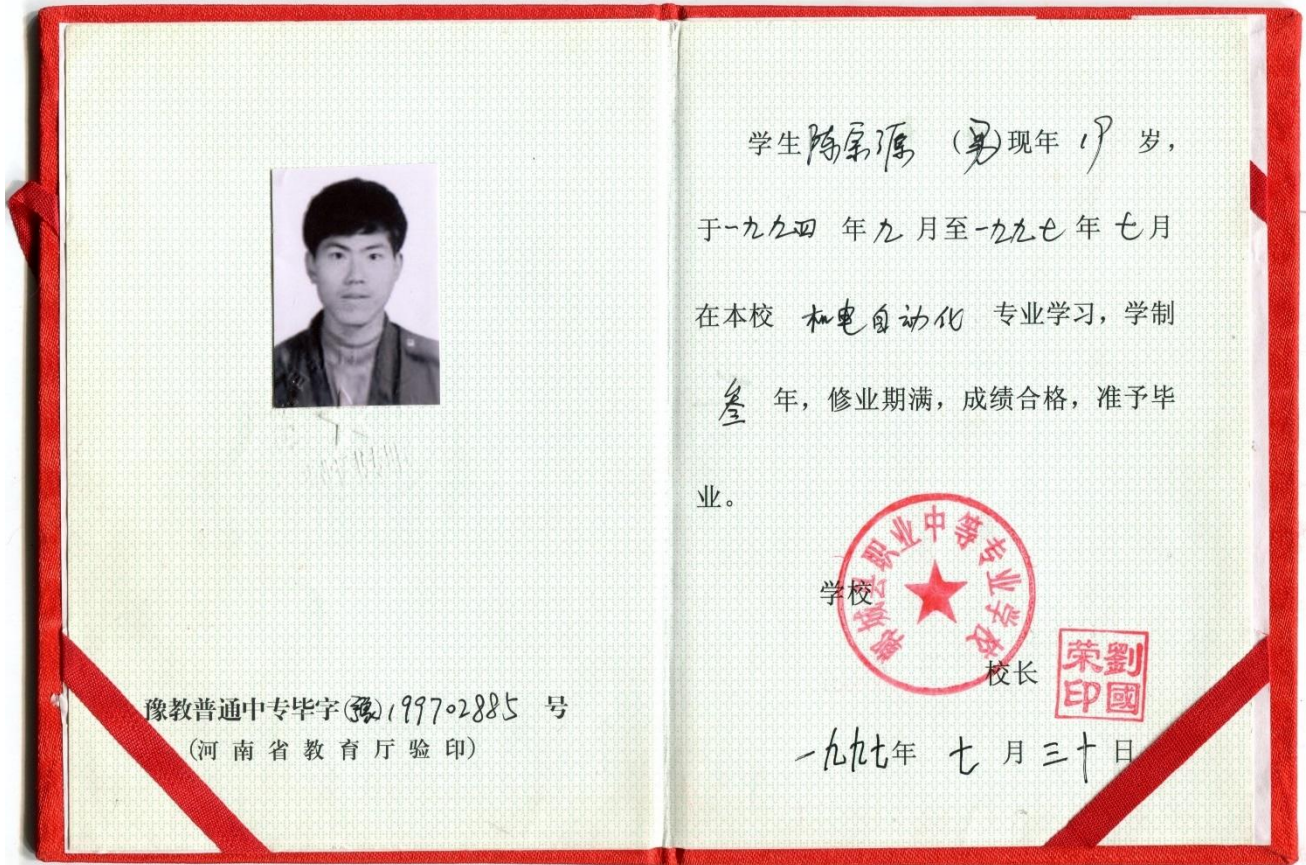 豫教普通中专毕字(豫)199702885 号
(河南省教育厅验印)
学生陈宗源 (男)现年 19 岁，
于一九九四 年九月至一九九七年七月
在本校 机电自动化 专业学习，学制
叁 年，修业期满，成绩合格，准予毕
业。
城县职业中等专业学校
学校
校长
劉國
荣印
一九九七年 七 月三十日